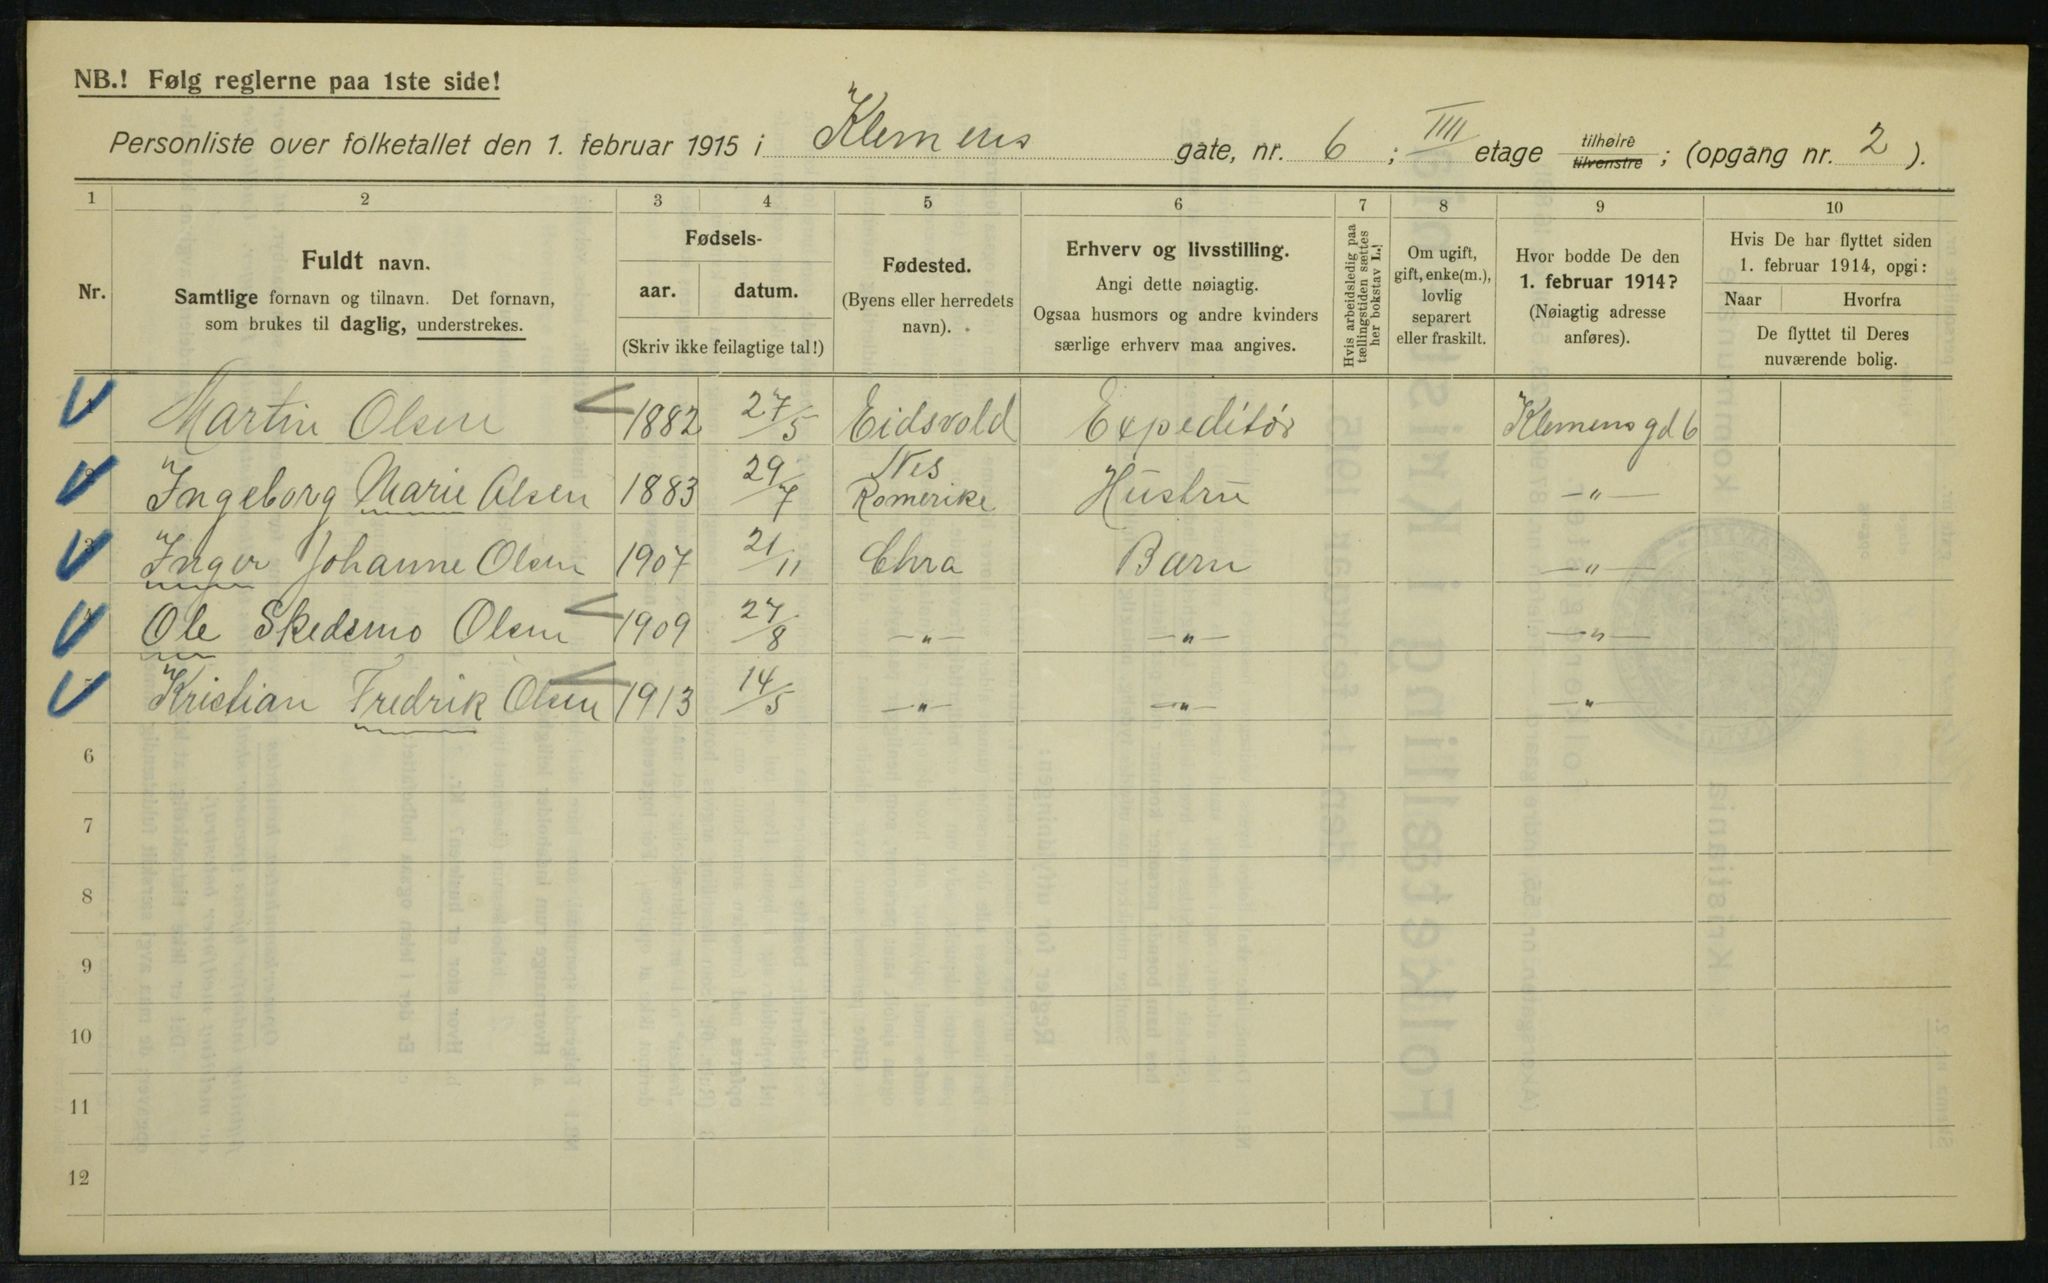 NB.! Følg reglerne paa 1ste side!
Personliste over folketallet den 1. februar 1915 i Klemens gate, nr. 6 ; IIII etage tilhøire tilvenstre ; (opgang nr. 2 ).
1 2 3 4 5 6 7 8 9 10
Nr.
Fuldt navn.
Samtlige fornavn og tilnavn. Det fornavn,
som brukes til daglig, understrekes.
Fødsels-
aar. datum.
(Skriv ikke feilagtige tal!)
Fødested.
(Byens eller herredets
navn).
Erhverv og livsstilling.
Angi dette nøiagtig.
Ogsaa husmors og andre kvinders
særlige erhverv maa angives.
Hvis arbeidsledig paa
tællingstiden sættes
her bokstav L.!
Om ugift,
gift, enke(m.),
lovlig
separert
eller fraskilt.
Hvor bodde De den
1. februar 1914?
(Nøiagtig adresse
anføres).
Hvis De har flyttet siden
1. februar 1914, opgi:
Naar Hvorfra
De flyttet til Deres
nuværende bolig.
1 Martin Olsen 1882 27/5 Eidsvold Expeditør Klemensgd 6
2 Ingeborg Marie Olsen 1883 29/7 Nes Romerike Hustru —"—
3 Inger Johanne Olsen 1907 21/11 Chra Barn —"—
4 Ole Skedsmo Olsen 1909 27/8 —"— —"— —"—
5 Kristian Fredrik Olsen 1913 14/5 —"— —"— —"—
6
7
8
9
10
11
12